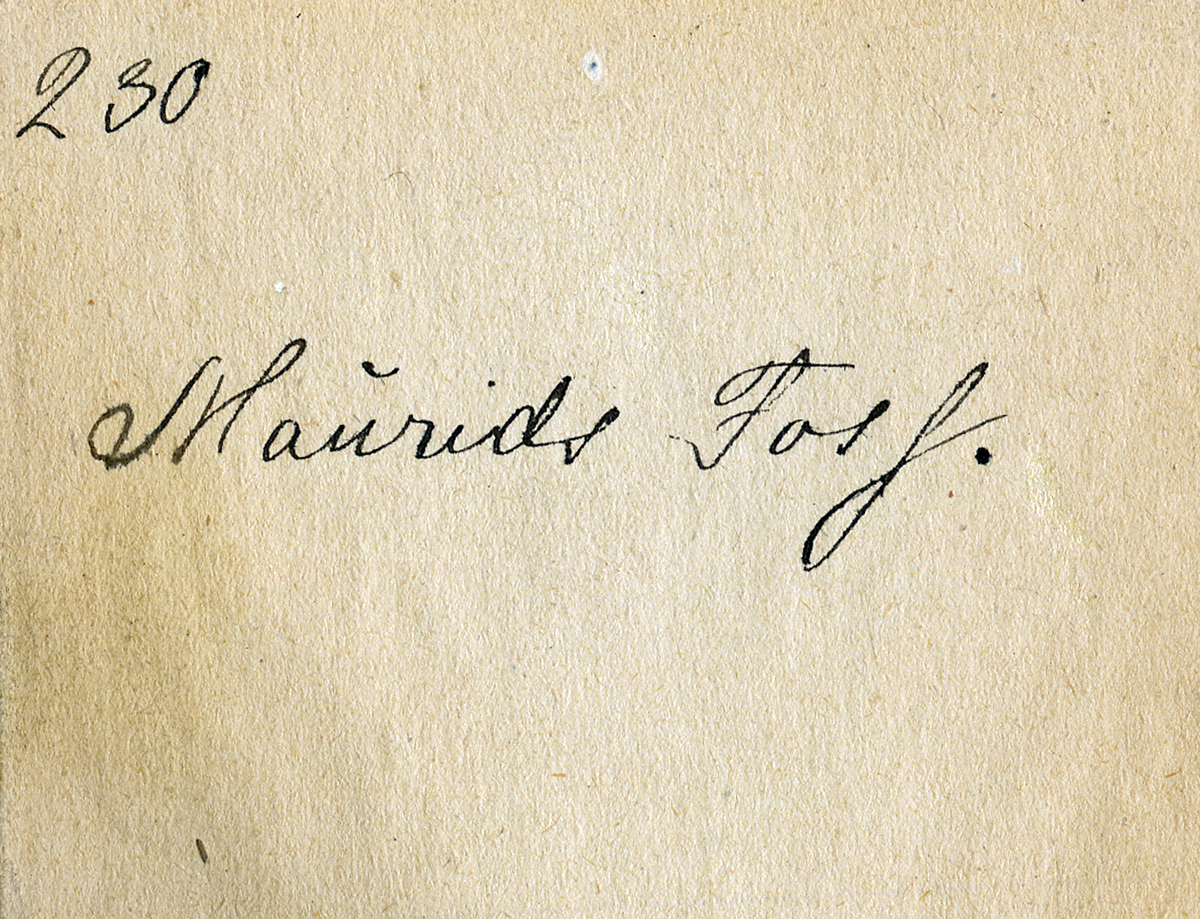 230
Maurids Foss.